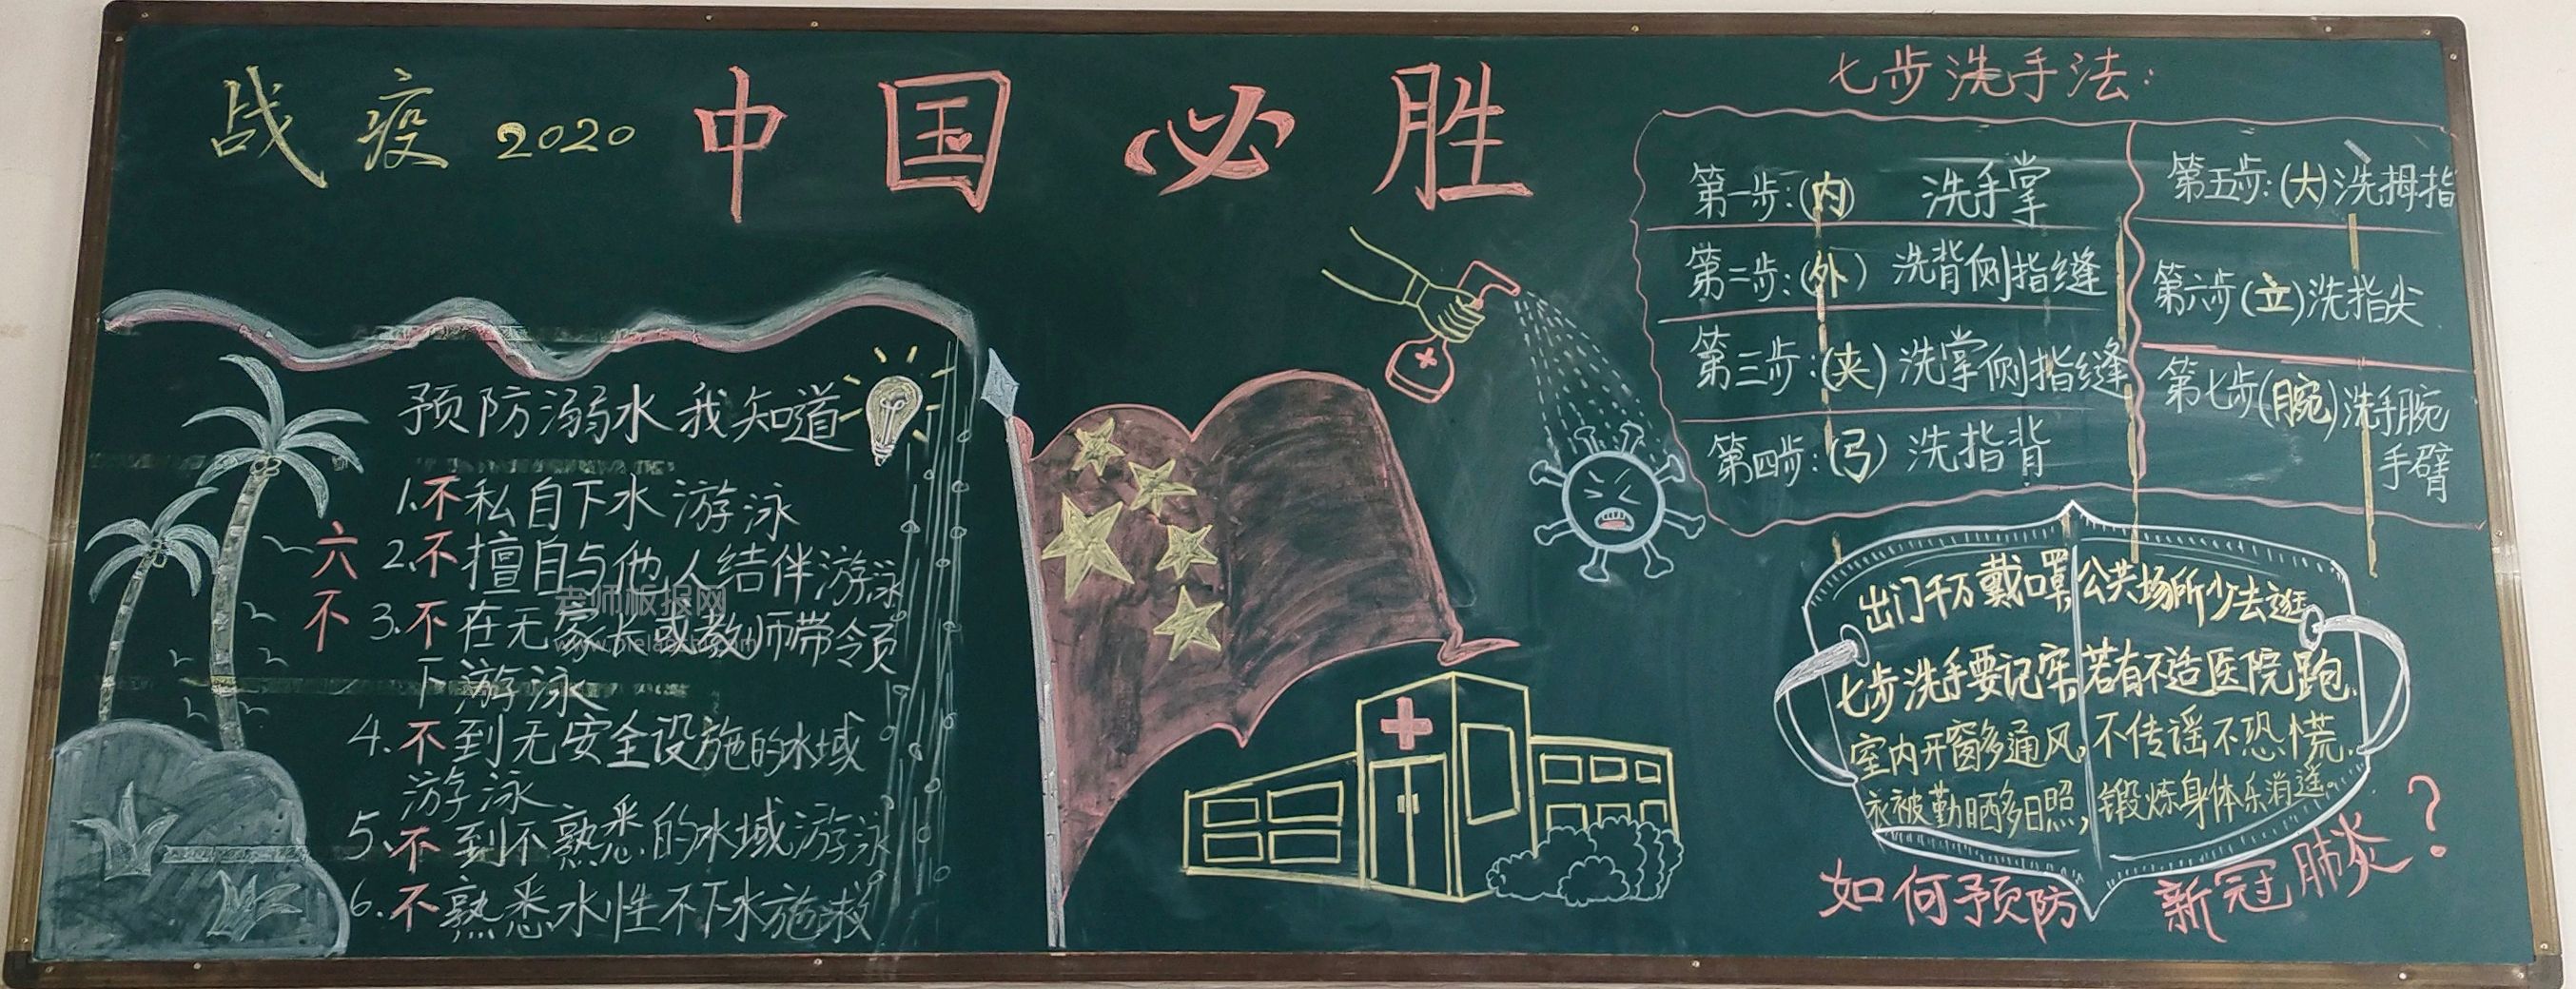 战疫 2020 中国必胜
预防溺水我知道
六不
1.不私自下水游泳
2.不擅自与他人结伴游泳
3.不在无家长或教师带领
下游泳
4.不到无安全设施的水域
游泳
5.不到不熟悉的水域游泳
6.不熟悉水性不下水施救
老师板报网
七步洗手法：
第一步：(内) 洗手掌
第二步：(外) 洗背侧指缝
第三步：(夹) 洗掌侧指缝
第四步：(弓) 洗指背
第五步：(大)洗拇指
第六步(立)洗指尖
第七步(腕)洗手腕
手臂
出门千万戴口罩,公共场所少去逛
七步洗手要记牢,若有不适医院跑.
室内开窗多通风,不传谣不恐慌.
衣被勤晒多日照,锻炼身体乐消遥.
如何预防新冠肺炎？